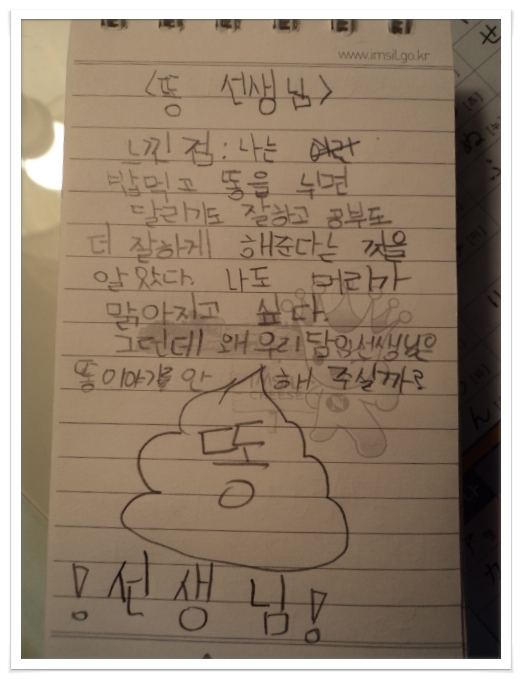 www.imsil.go.kr
<똥 선생님>
느낀 점 : 나는
밥먹고 똥을 누면
달리기도 잘하고 공부도
더 잘하게 해준다는 것을
알았다. 나도 머리가
맑아지고 싶다.
그런데 왜 우리 담임선생님은
똥이야기를 안 해 주실까?
똥
! 선생님!